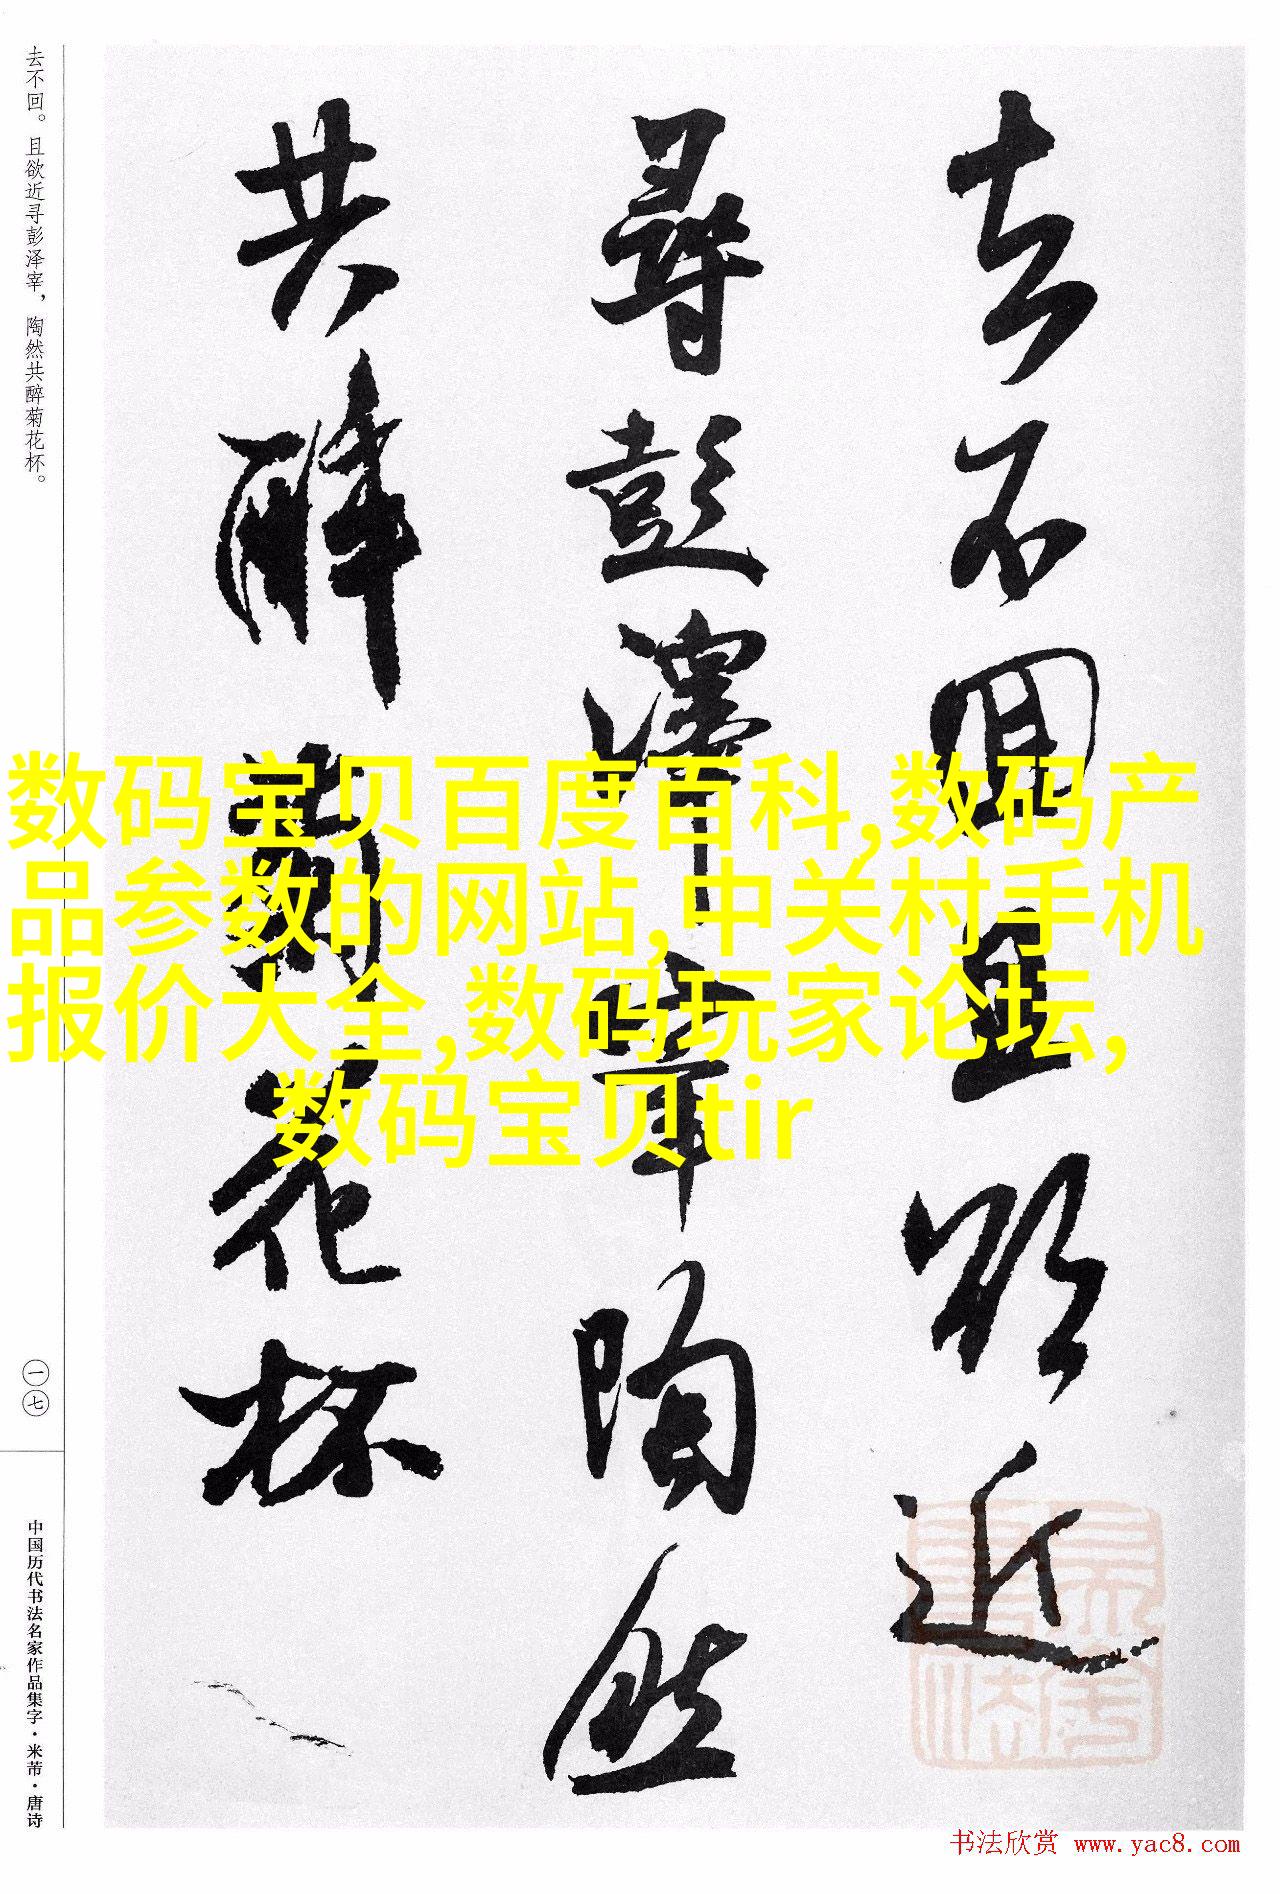 去不回且欲近
尋彭澤宰陶然
共醉菊花杯
去不回。且欲近寻彭泽宰，陶然共醉菊花杯。
一七
中国历代书法名家作品集字·米芾·唐诗
数码宝贝百度百科,数码产
品参数的网站,中关村手机
报价大全,数码玩家论坛,
数码宝贝tir
书法欣赏 www.yac8.com